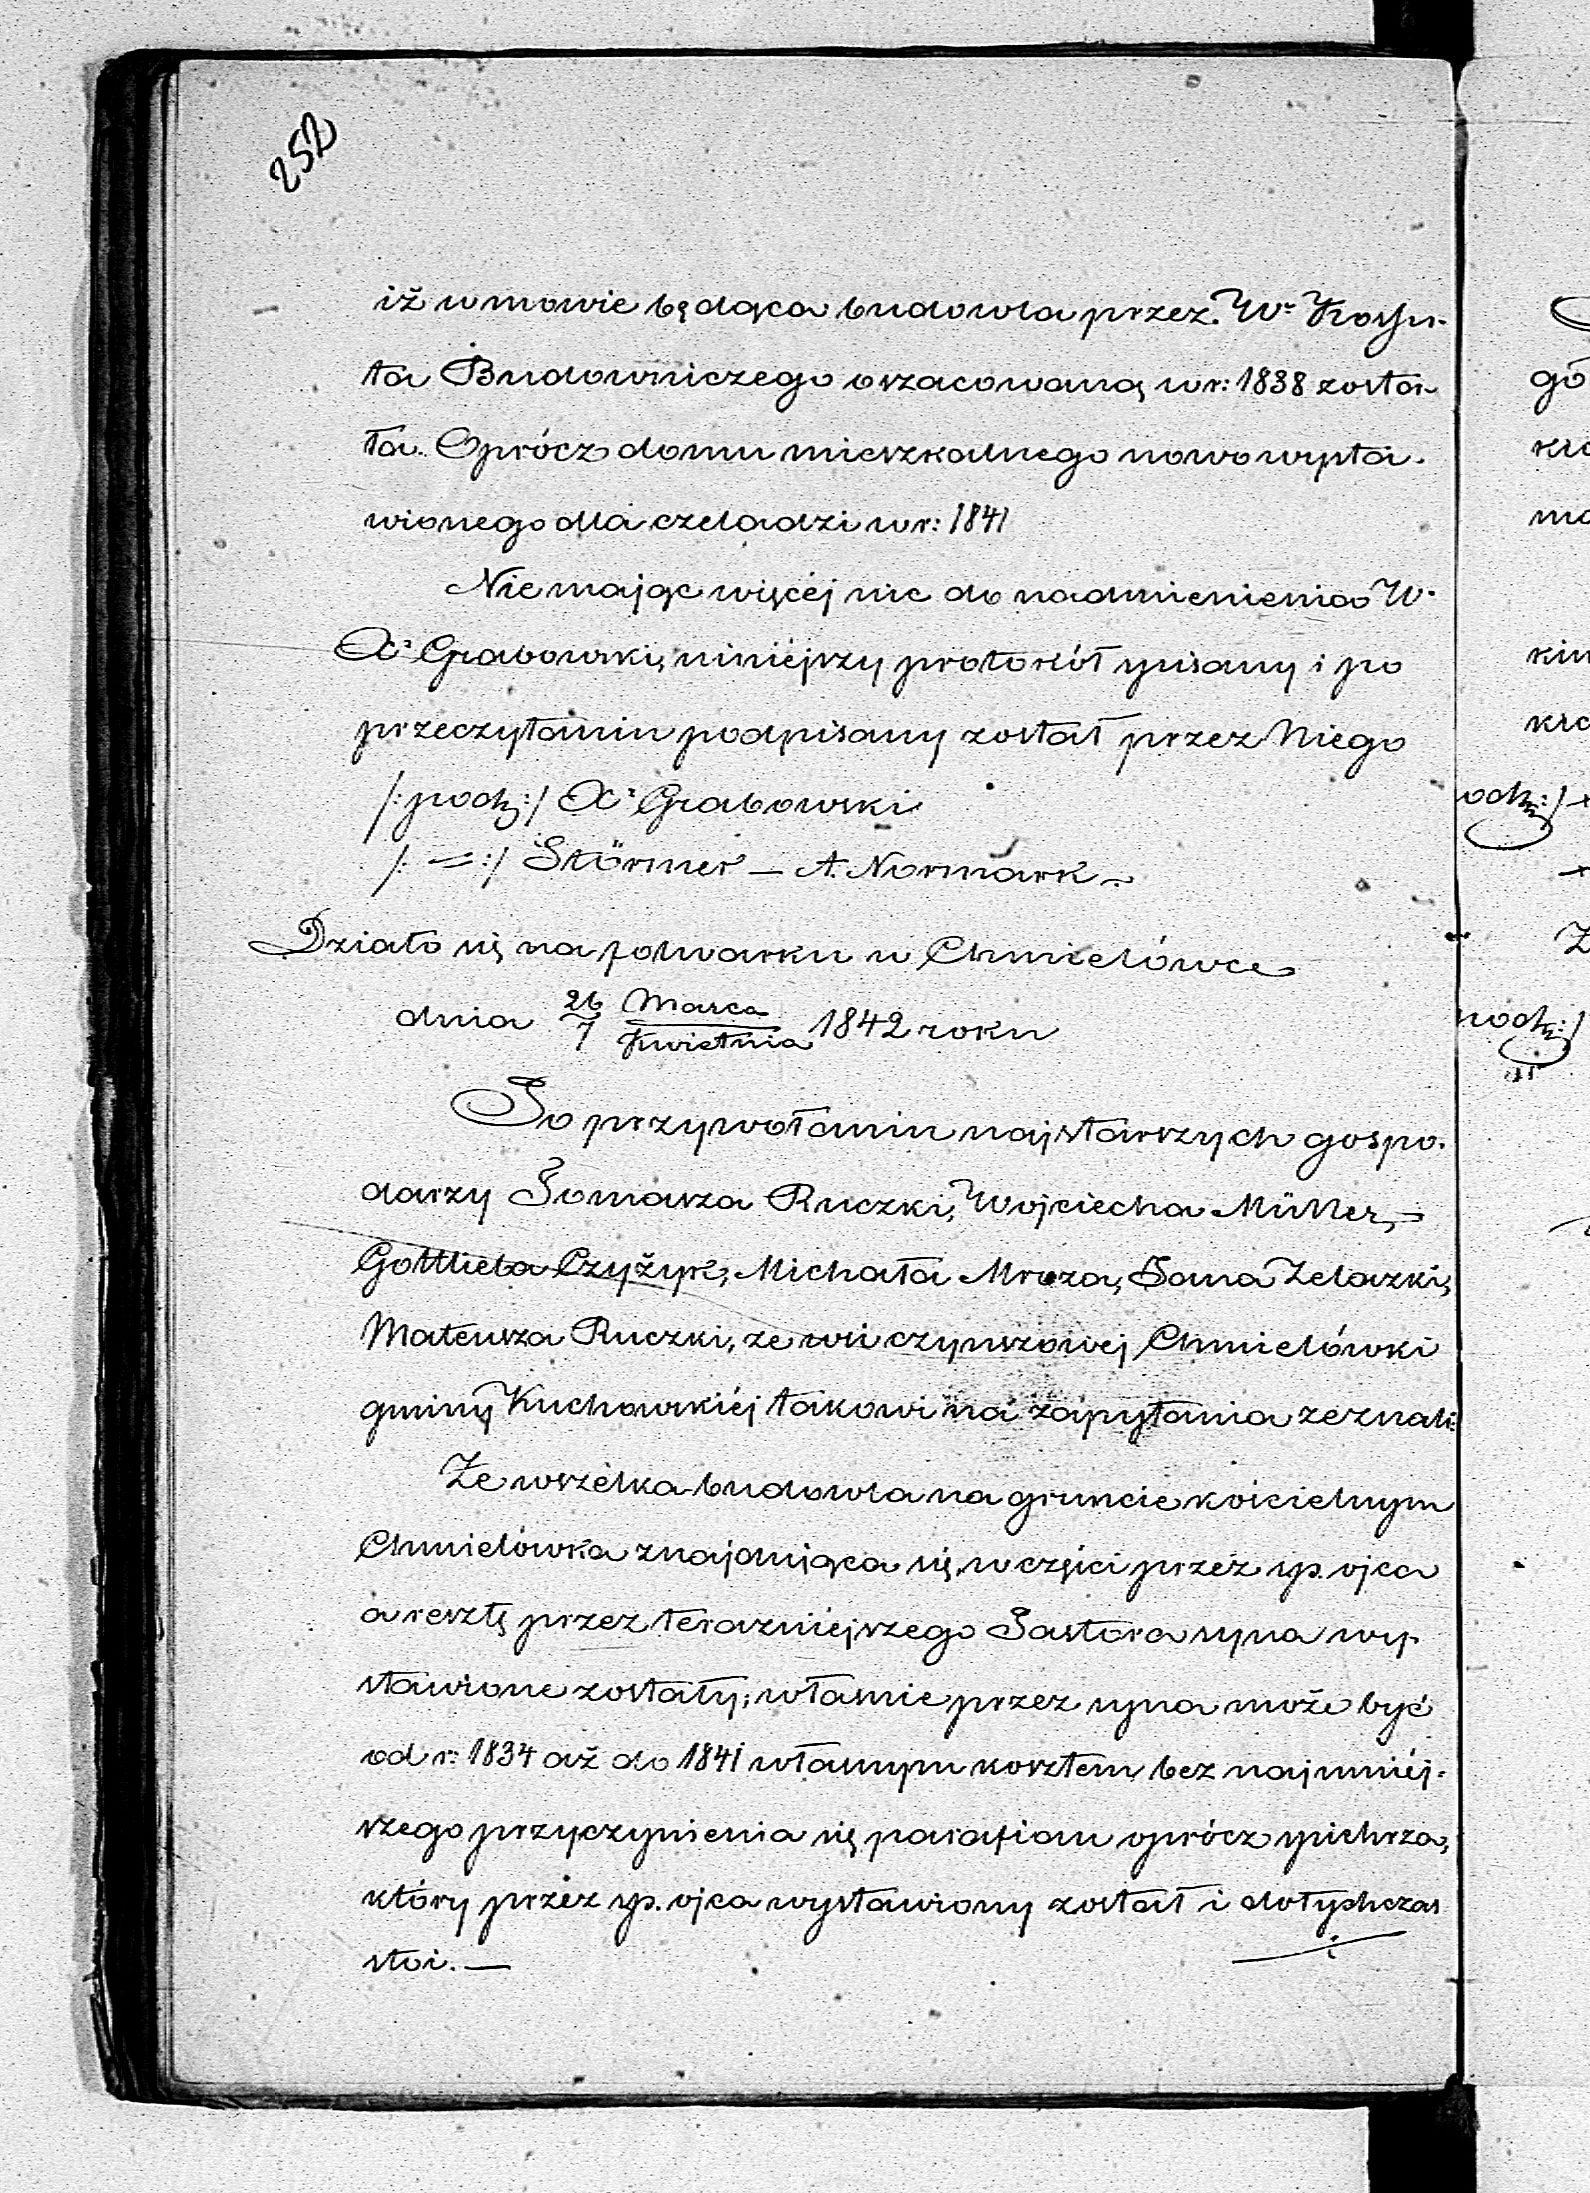 252
iż w mowie będąca budowla przez W° Kossu-
ta Budowniczego oszacowaną w r: 1838 zosta-
ła. Oprócz domu mieszkalnego nowo wysta-
wionego dla czeladzi w r: 1841
Nie mając więcéj nic do nadmienienia W.
X: Grabowski, niniéjszy protokół spisany i po
przeczytaniu podpisany został przez Niego
/: podp :/ X: Grabowski
/: = :/ Störmer — A. Normark —
Działo się na folwarku w Chmielówce
dnia 26/7 Marca/Kwietnia 1842 roku
Po przywołaniu najstarszych gospo-
darzy Tomasza Ruczki, Wojciecha Müller,
Gottlieba Czyżyk, Michała Mroza, Jana Zelazki,
Mateusza Ruczki, ze wsi czynszowej Chmielówki
gminy Kuchowskiéj takowi na zapytania zeznali:
Ze wszelka budowla na gruncie kościelnym
Chmielówka znajdująca się, w części przez śp. ojca
a resztę przez teraźniéjszego Pastora syna wy-
stawione zostały; własnie przez syna może być
od r: 1834 aż do 1841 własnym kosztem, bez najmniéj-
szego przyczynienia się parafian oprócz spichrza,
który przez śp. ojca wystawiony został i dotychczas
stoi. —
gó